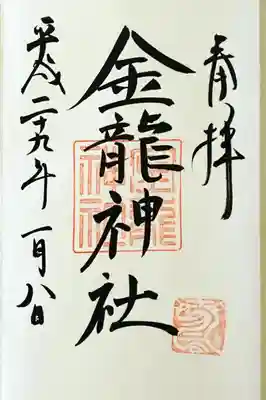 奉拝
金龍神社
平成二十九年一月八日